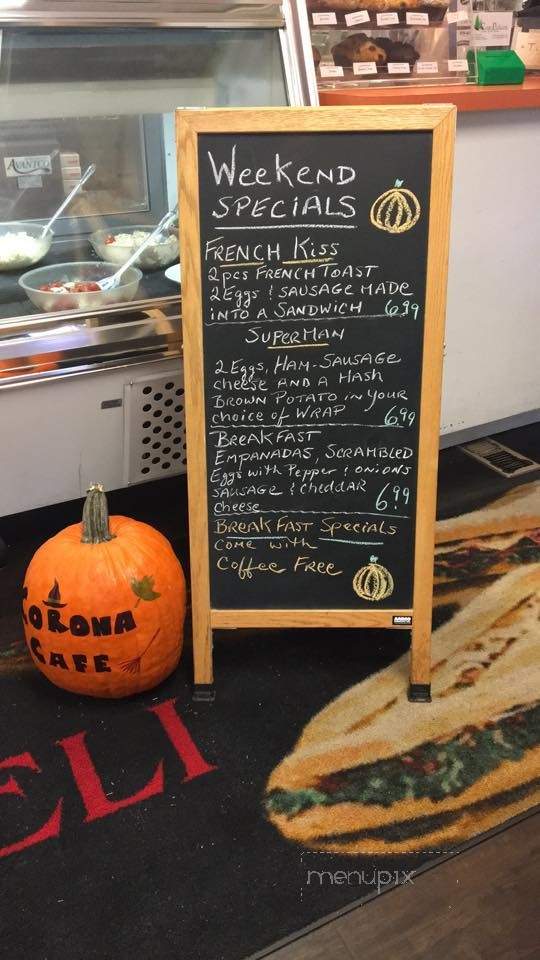 AVANTCO
WeekEND
SPECIALS
FRENCH Kiss
2pcs FRENCH TOAST
2 Eggs & SAUSAGE MADE
iNTO A SANDWICH 6.99
SUPERMAN
2 Eggs, HAM-SAUSAGE
cheese AND A HASH
BROWN POTATO iN YOUR
choice of WRAP 6.99
BREAKFAST
EMPANADAS, SCRAMBLED
Eggs with Pepper & ONIONS
SAUSAGE & CheddAR
cheese 6.99
BREAKFAST SPECiALS
COME with
Coffee FREE
CORONA
CAFE
ELI
menupix